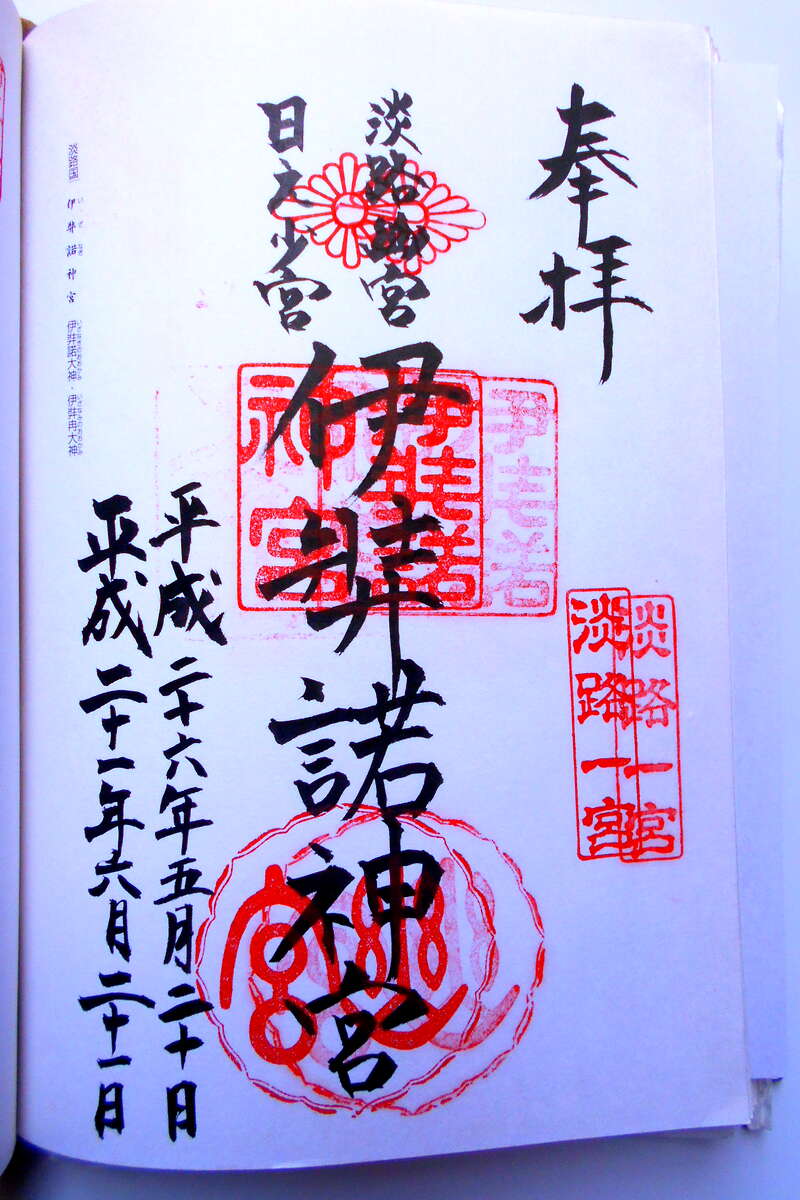 奉拝
淡路一宮
淡路一宮
淡路幽宮
日之少宮
伊弉諾神宮
伊弉諾
神宮
平成二十六年五月二十日
平成二十一年六月二十一日
淡路国一 伊弉諾神宮 伊弉諾大神・伊弉冉大神